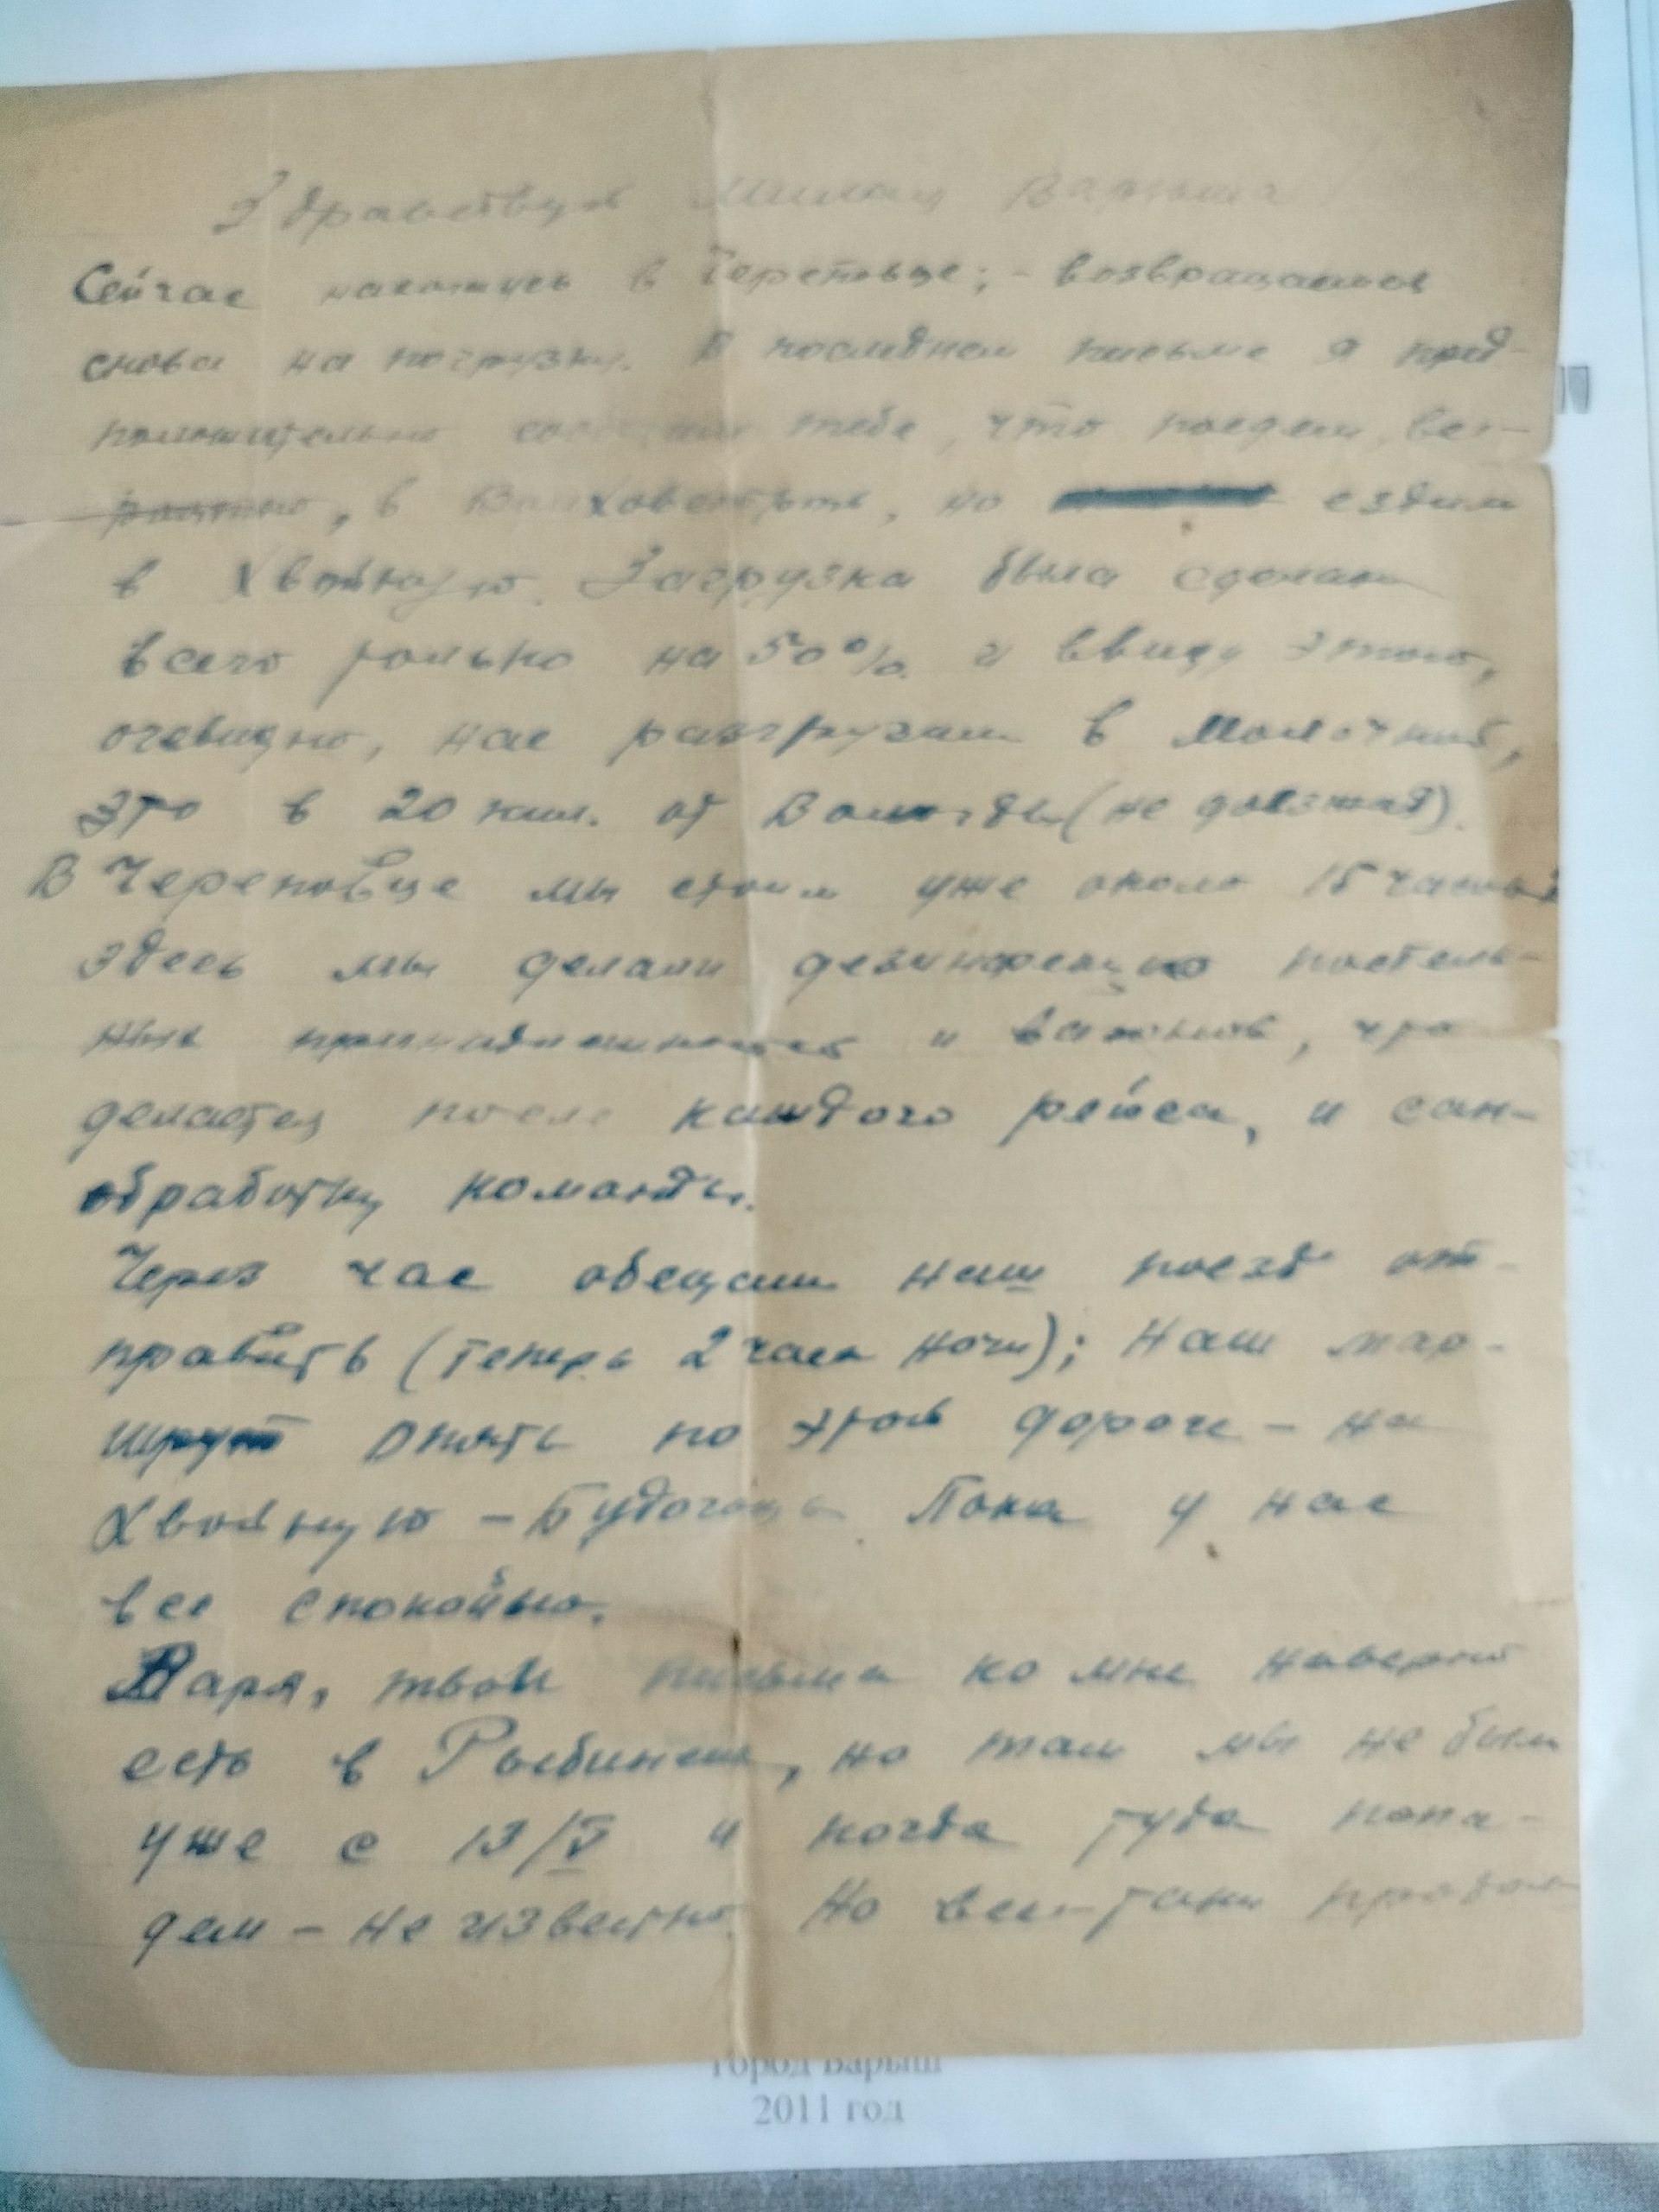 Здравствуй Милая Варюша
Сейчас нахожусь в Череповце; - возвращаемся
снова на погрузку. В последнем письме я пред-
положительно сообщил тебе, что поедем, вес-
в Волховстрой, но ездили
в Хвойную. Загрузка была сделана
всего только на 50% и ввиду этого,
очевидно, нас разгрузили в Молочной,
это в 20 кил. от Вологды (не доезжая).
В Череповце мы стоим уже около 15 часов
здесь мы делали дезинфекцию постель-
ных принадлежностей и вагонов, что
делается после каждого рейса, и сан-
обработку команды.
Через час обещали наш поезд от-
править (теперь 2 часа ночи); Наш мар-
шрут опять по этой дороге - на
Хвойную - Будогощь. Пока у нас
все спокойно.
Варя, твои письма ко мне наверно
есть в Рыбинске, но там мы не были
уже с 13/V и когда туда попа-
дем - не известно. Но все-таки
город Барыш
2011 год